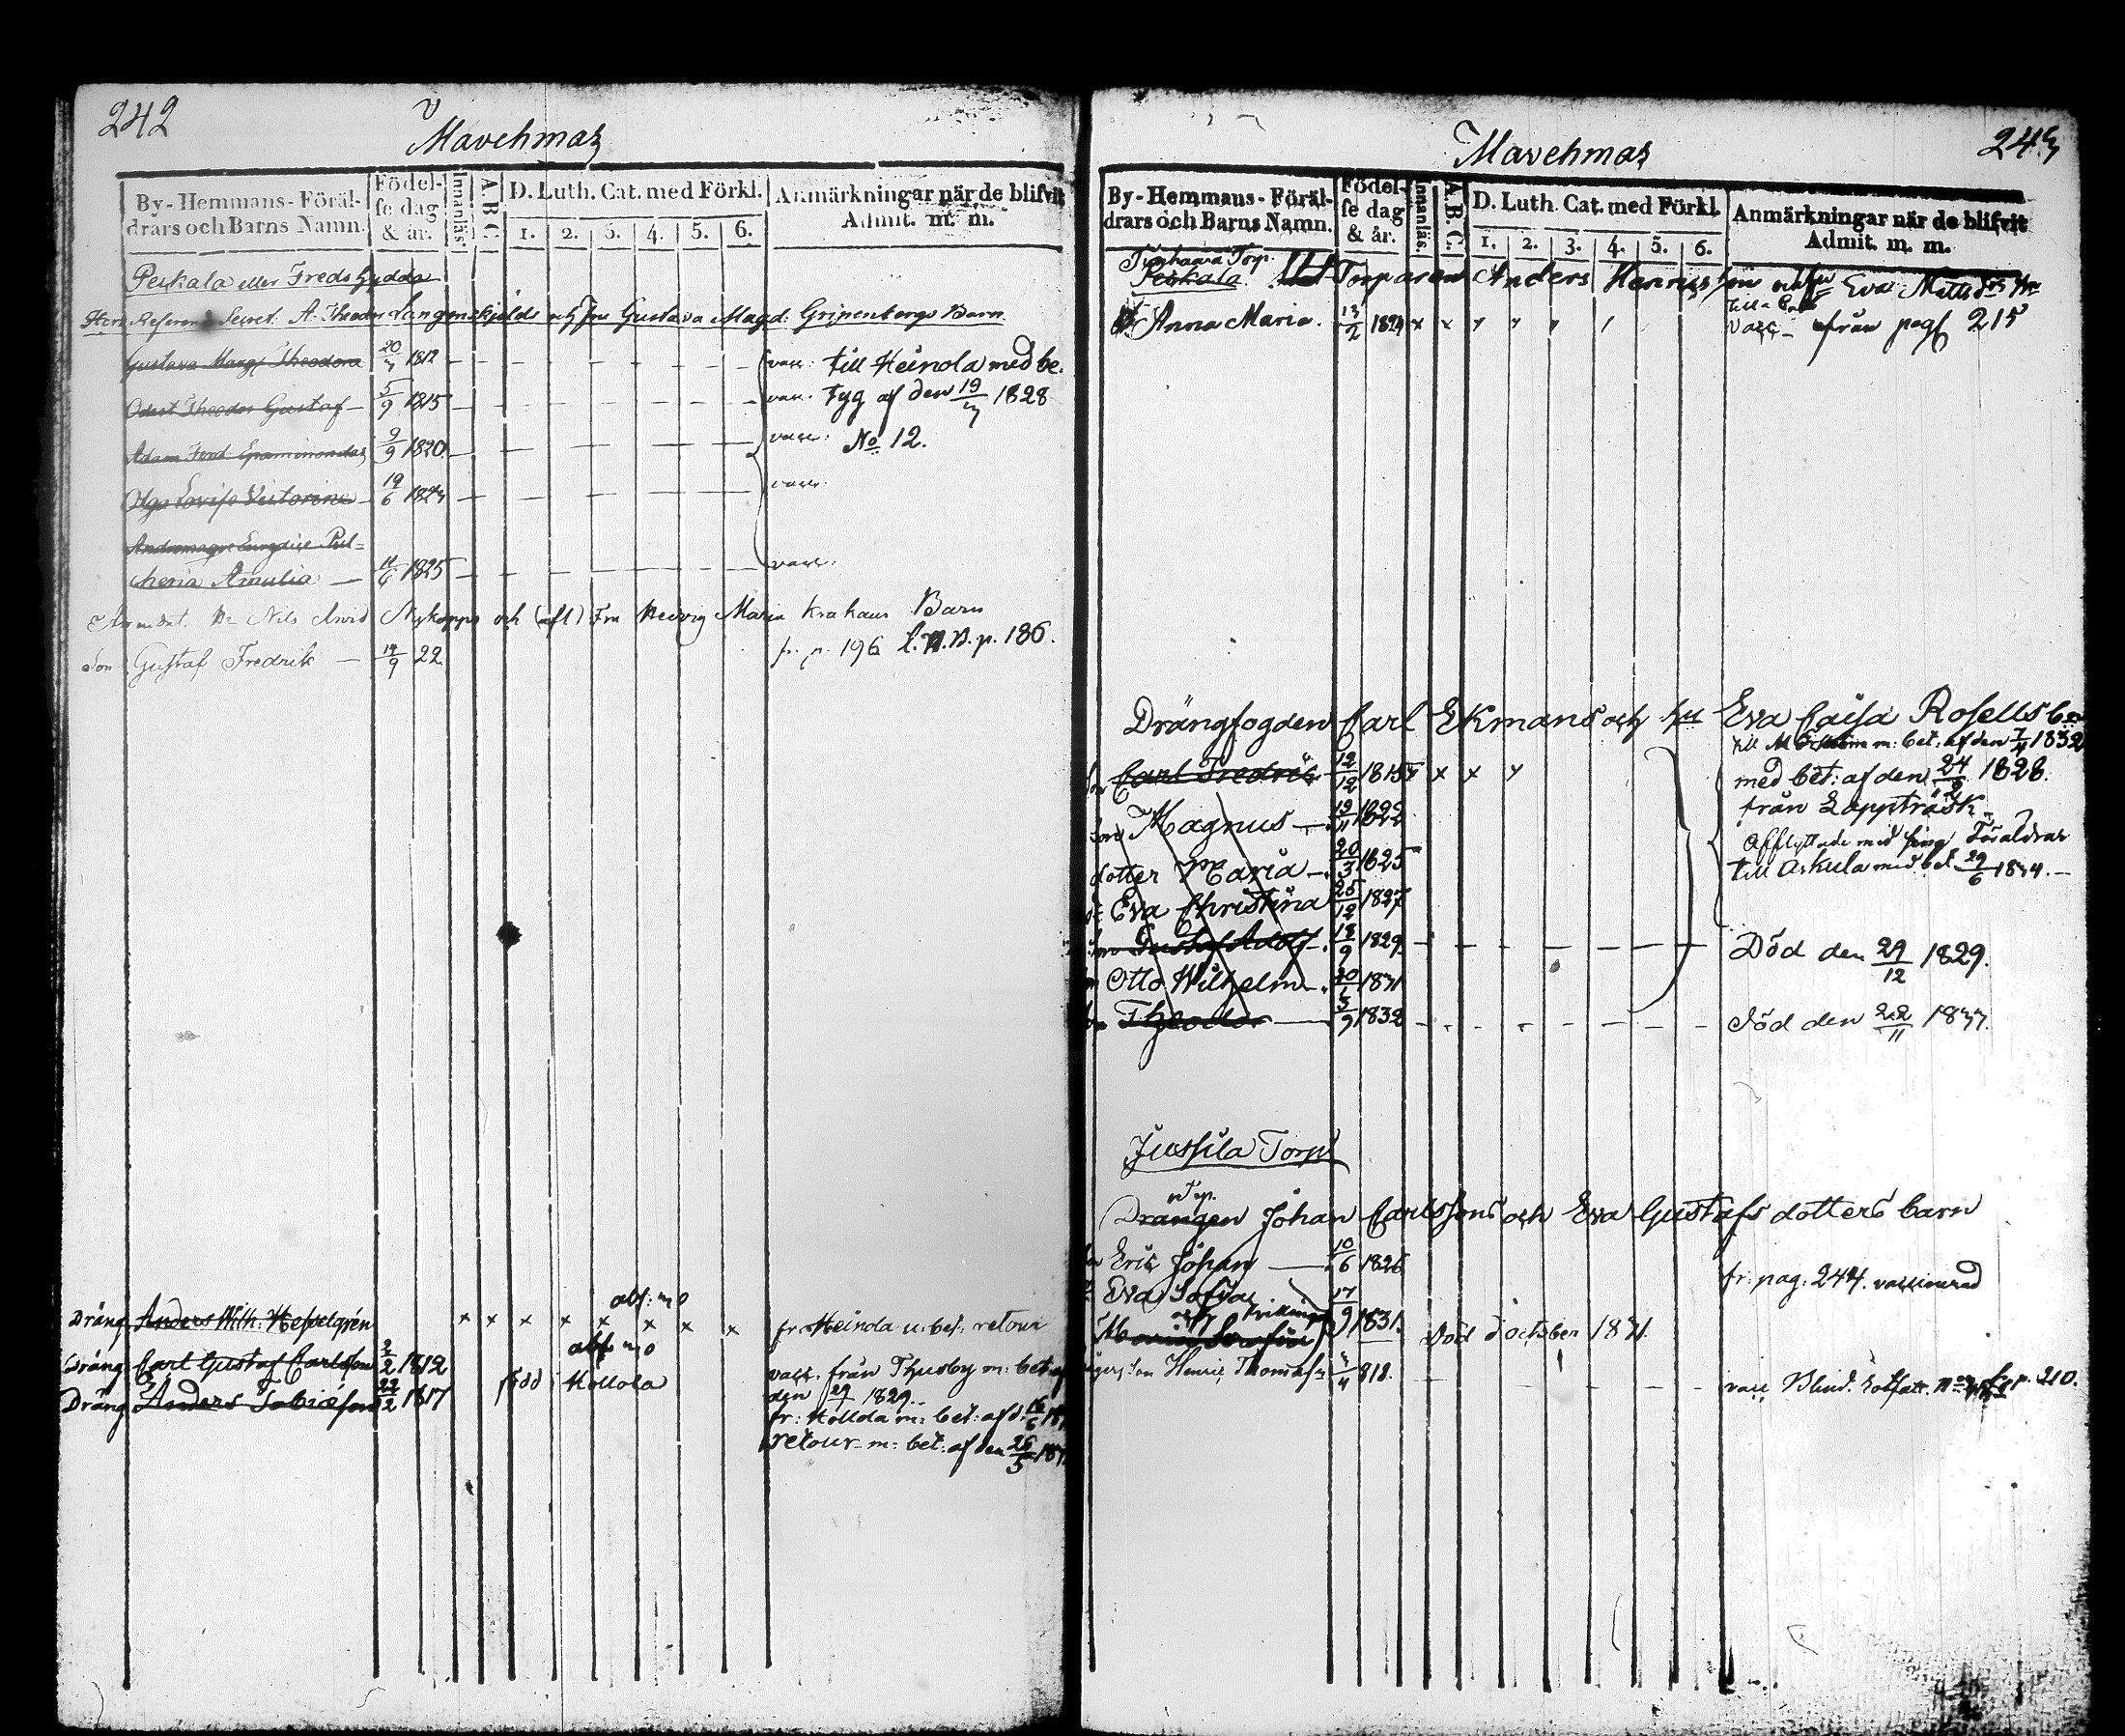 242
Mavehmaz
By-Hemmans-Föräl-
drars och Barns Namn.
Födel-
se dag
& år.
Innanläs.
A.B.C.
D. Luth. Cat. med Förkl.
1. 2. 3. 4. 5. 6.
Anmärkningar när de blifvit
Admit. m. m.
Peikala eller Fredshydda
Referend. Secret. A. Theodor Langenskjölds och Fru Gustava Magd. Gripenbergs Barn
Gustava Marg. Theodora 20/3 1812 vacc. till Heinola med be-
Theodor Gustaf 5/9 1815 vacc. tyg af den 19/3 1828
Adam Ferd. Epaminondas 9/9 1820 vacc. No 12.
Olga Lovisa Victorine 19/6 1823 vacc.
Andromaque Euredice Pul-
cheria Amalia 11/6 1825 vacc.
Nils Arvid Nykopps och Fru Hedvig Maria Krahaus Barn
Son Gustaf Fredrik 19/9 22 fr. p. 196 p. 186.
Dräng Anders Wilh. Hesselgrén fr. Heinola u. bet. retour
Dräng Carl Gustaf Carlsson 2/2 1812 vacc. från Thusby m: bet. af
den 29/ 1829.
Dräng Anders Tobiesson 22/2 1817 född i Hollola
fr: Hollola m: bet: af d. 16/6
retour m: bet: af den 26/5
243
Mavehmaz
By-Hemmans-Föräl-
drars och Barns Namn.
Födel-
se dag
& år.
Innanläs.
A.B.C.
D. Luth. Cat. med Förkl.
1. 2. 3. 4. 5. 6.
Anmärkningar när de blifvit
Admit. m. m.
Torp.
Peikala Torparen Anders Henrisson och Eva Matts
Anna Maria. 13/2 1824 x x vacc. från pag 215
Drängfogden Carl Ekmans och hu Eva Caisa Rosells
till m: bet: af den 7/4 1832
Carl Fredric 12/12 1815 x x med bet: af den 24/ 1828.
från Lappträsk
son Magnus 19/11 1822
Afflyttade med sina Föräldrar
dotter Maria 20/3 1825 till Askula med bet. 29/6 1834.
Eva Christina 25/12 1827
Gustaf Adolf 18/9 1829 Död den 29/12 1829.
Otto Wilhelm 20/ 1831
Theodor 5/9 1832 Död den 22/11 1833.
Jussila Torp
Drängen Johan Carlssons och Eva Gustafs dotters barn
Eric Johan 10/6 1826 fr: pag: 244. vaccinerad
Eva Sofva 17/9 1831.
Maria Serafia Död i october 1831.
Henric Thomass. 3/4 818. vacc p. 210.